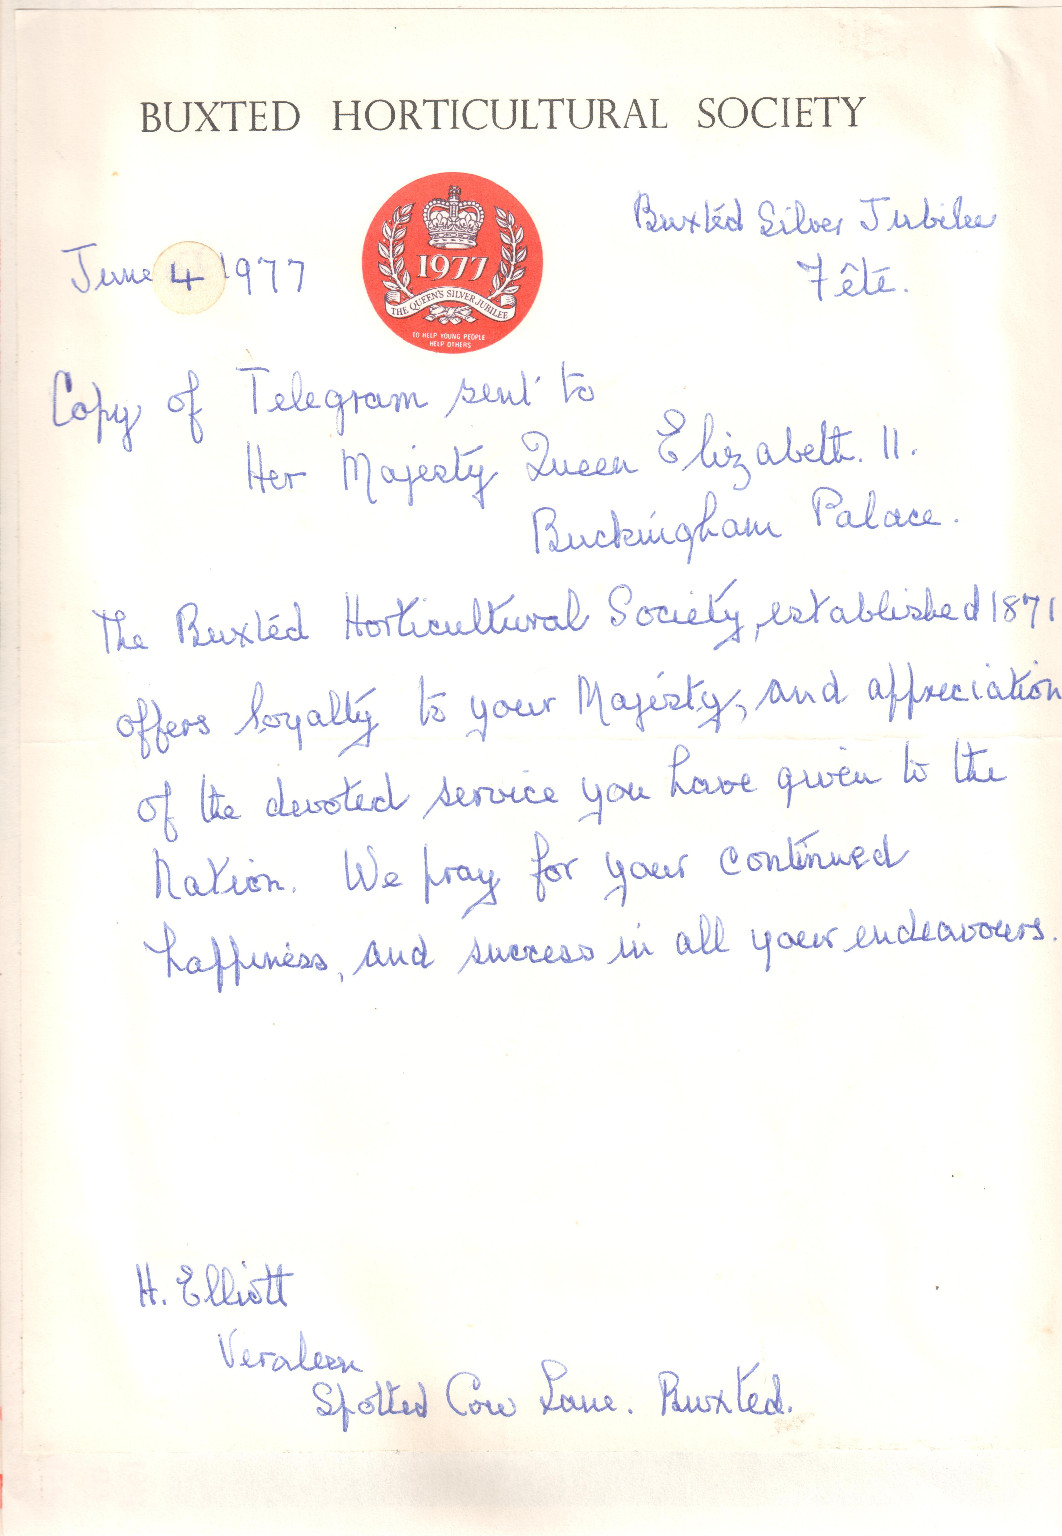 BUXTED HORTICULTURAL SOCIETY
Buxted Silver Jubilee
Fête.
June 4 1977
1977
THE QUEEN'S SILVER JUBILEE
TO HELP YOUNG PEOPLE
HELP OTHERS
Copy of Telegram sent to
Her Majesty Queen Elizabeth. II.
Buckingham Palace.
The Buxted Horticultural Society, established 1871
offers loyalty to your Majesty, and appreciation
of the devoted service you have given to the
Nation. We pray for your continued
happiness, and success in all your endeavours.
H. Elliott
Veraleen
Spotted Cow Lane. Buxted.